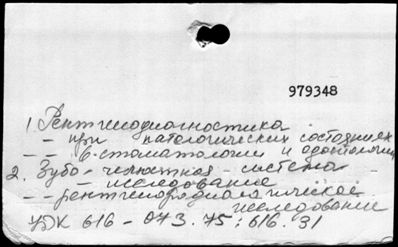 979348
1. Рентгенодиагностика
-- при патологических состояниях
-- в стоматологии и одонтологии
2. Зубо-челюстная система
-- исследование
-- рентгенорадиологическое
исследование
УДК 616-073.75:616.31